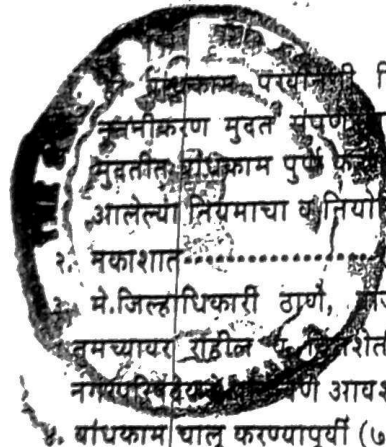 बांधकाम परवानगी
नुतनीकरण मुदत संपण
मुदतीत बांधकाम पुर्ण
आलेल्या नियमाचा व नियो
२. नकाशात....................
३. मे.जिल्हाधिकारी ठाणे,
तुमच्यावर राहील
आवश
४. बांधकाम चालू करण्यापुर्वी (७